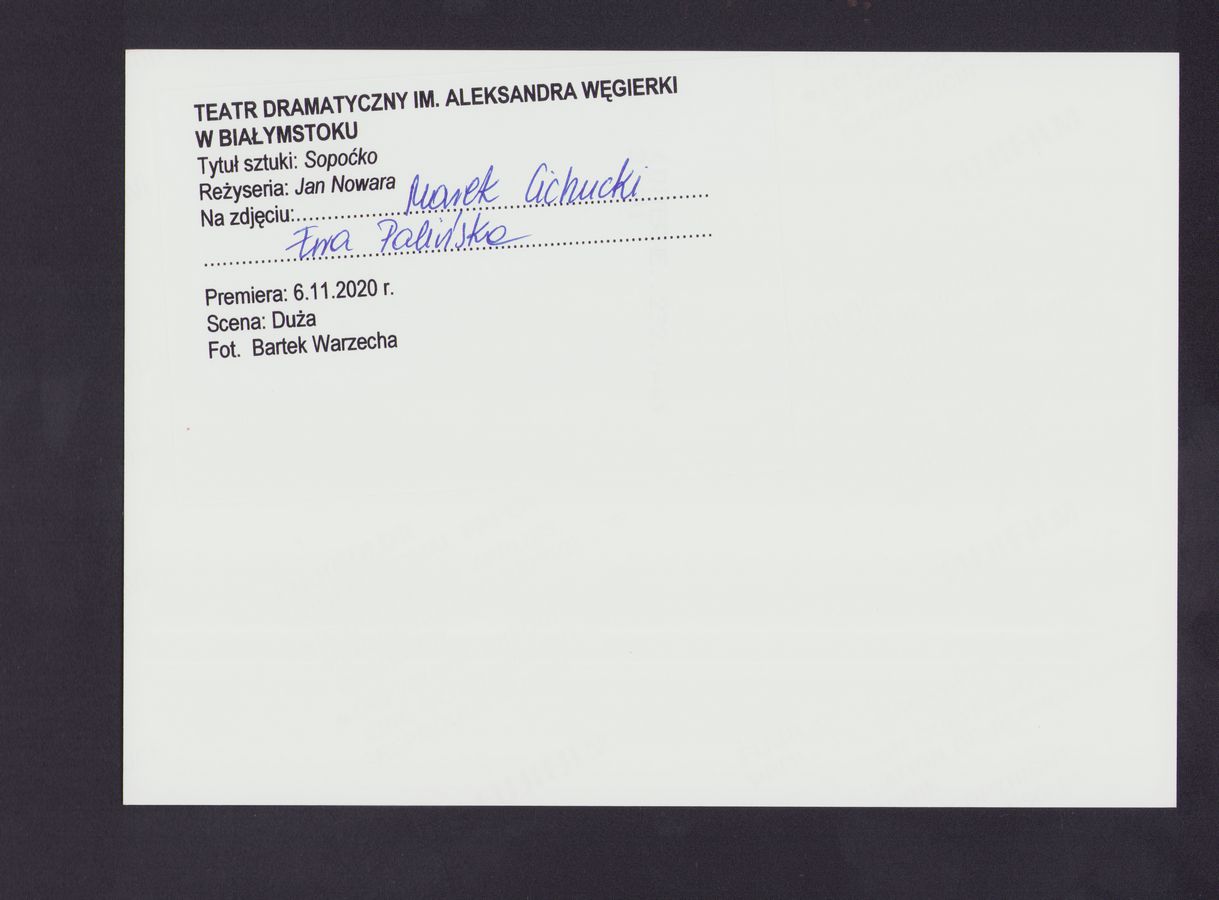 TEATR DRAMATYCZNY IM. ALEKSANDRA WĘGIERKI
W BIAŁYMSTOKU
Tytuł sztuki: Sopoćko
Reżyseria: Jan Nowara
Na zdjęciu:.................. Marek Cichucki
Ewa Palińska
Premiera: 6.11.2020 r.
Scena: Duża
Fot. Bartek Warzecha